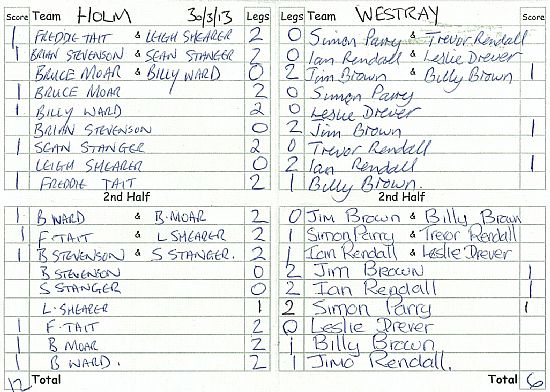 Score Team HOLM 30/3/13 Legs Legs Team WESTRAY Score
1 FREDDIE TAIT & LEIGH SHEARER 2 0 Simon Parry & Trevor Rendall
1 BRIAN STEVENSON & SEAN STANGER 2 0 Ian Rendall & Leslie Drever
BRUCE MOAR & BILLY WARD 0 2 Jim Brown & Billy Brown 1
1 BRUCE MOAR 2 0 Simon Parry
1 BILLY WARD 2 0 Leslie Drever
BRIAN STEVENSON 0 2 Jim Brown 1
1 SEAN STANGER 2 0 Trevor Rendall
LEIGH SHEARER 0 2 Ian Rendall 1
1 FREDDIE TAIT 2 1 Billy Brown.
2nd Half 2nd Half
1 B WARD & B. MOAR 2 0 Jim Brown & Billy Brown
1 F. TAIT & L SHEARER 2 1 Simon Parry & Trevor Rendall
1 B STEVENSON & S STANGER. 2 1 Ian Rendall & Leslie Drever
B STEVENSON 0 2 Jim Brown 1
S STANGER 0 2 Ian Rendall 1
L. SHEARER 1 2 Simon Parry 1
1 F. TAIT 2 0 Leslie Drever
1 B MOAR 2 1 Billy Brown
1 B WARD. 2 1 Jimo Rendall.
12 Total Total 6